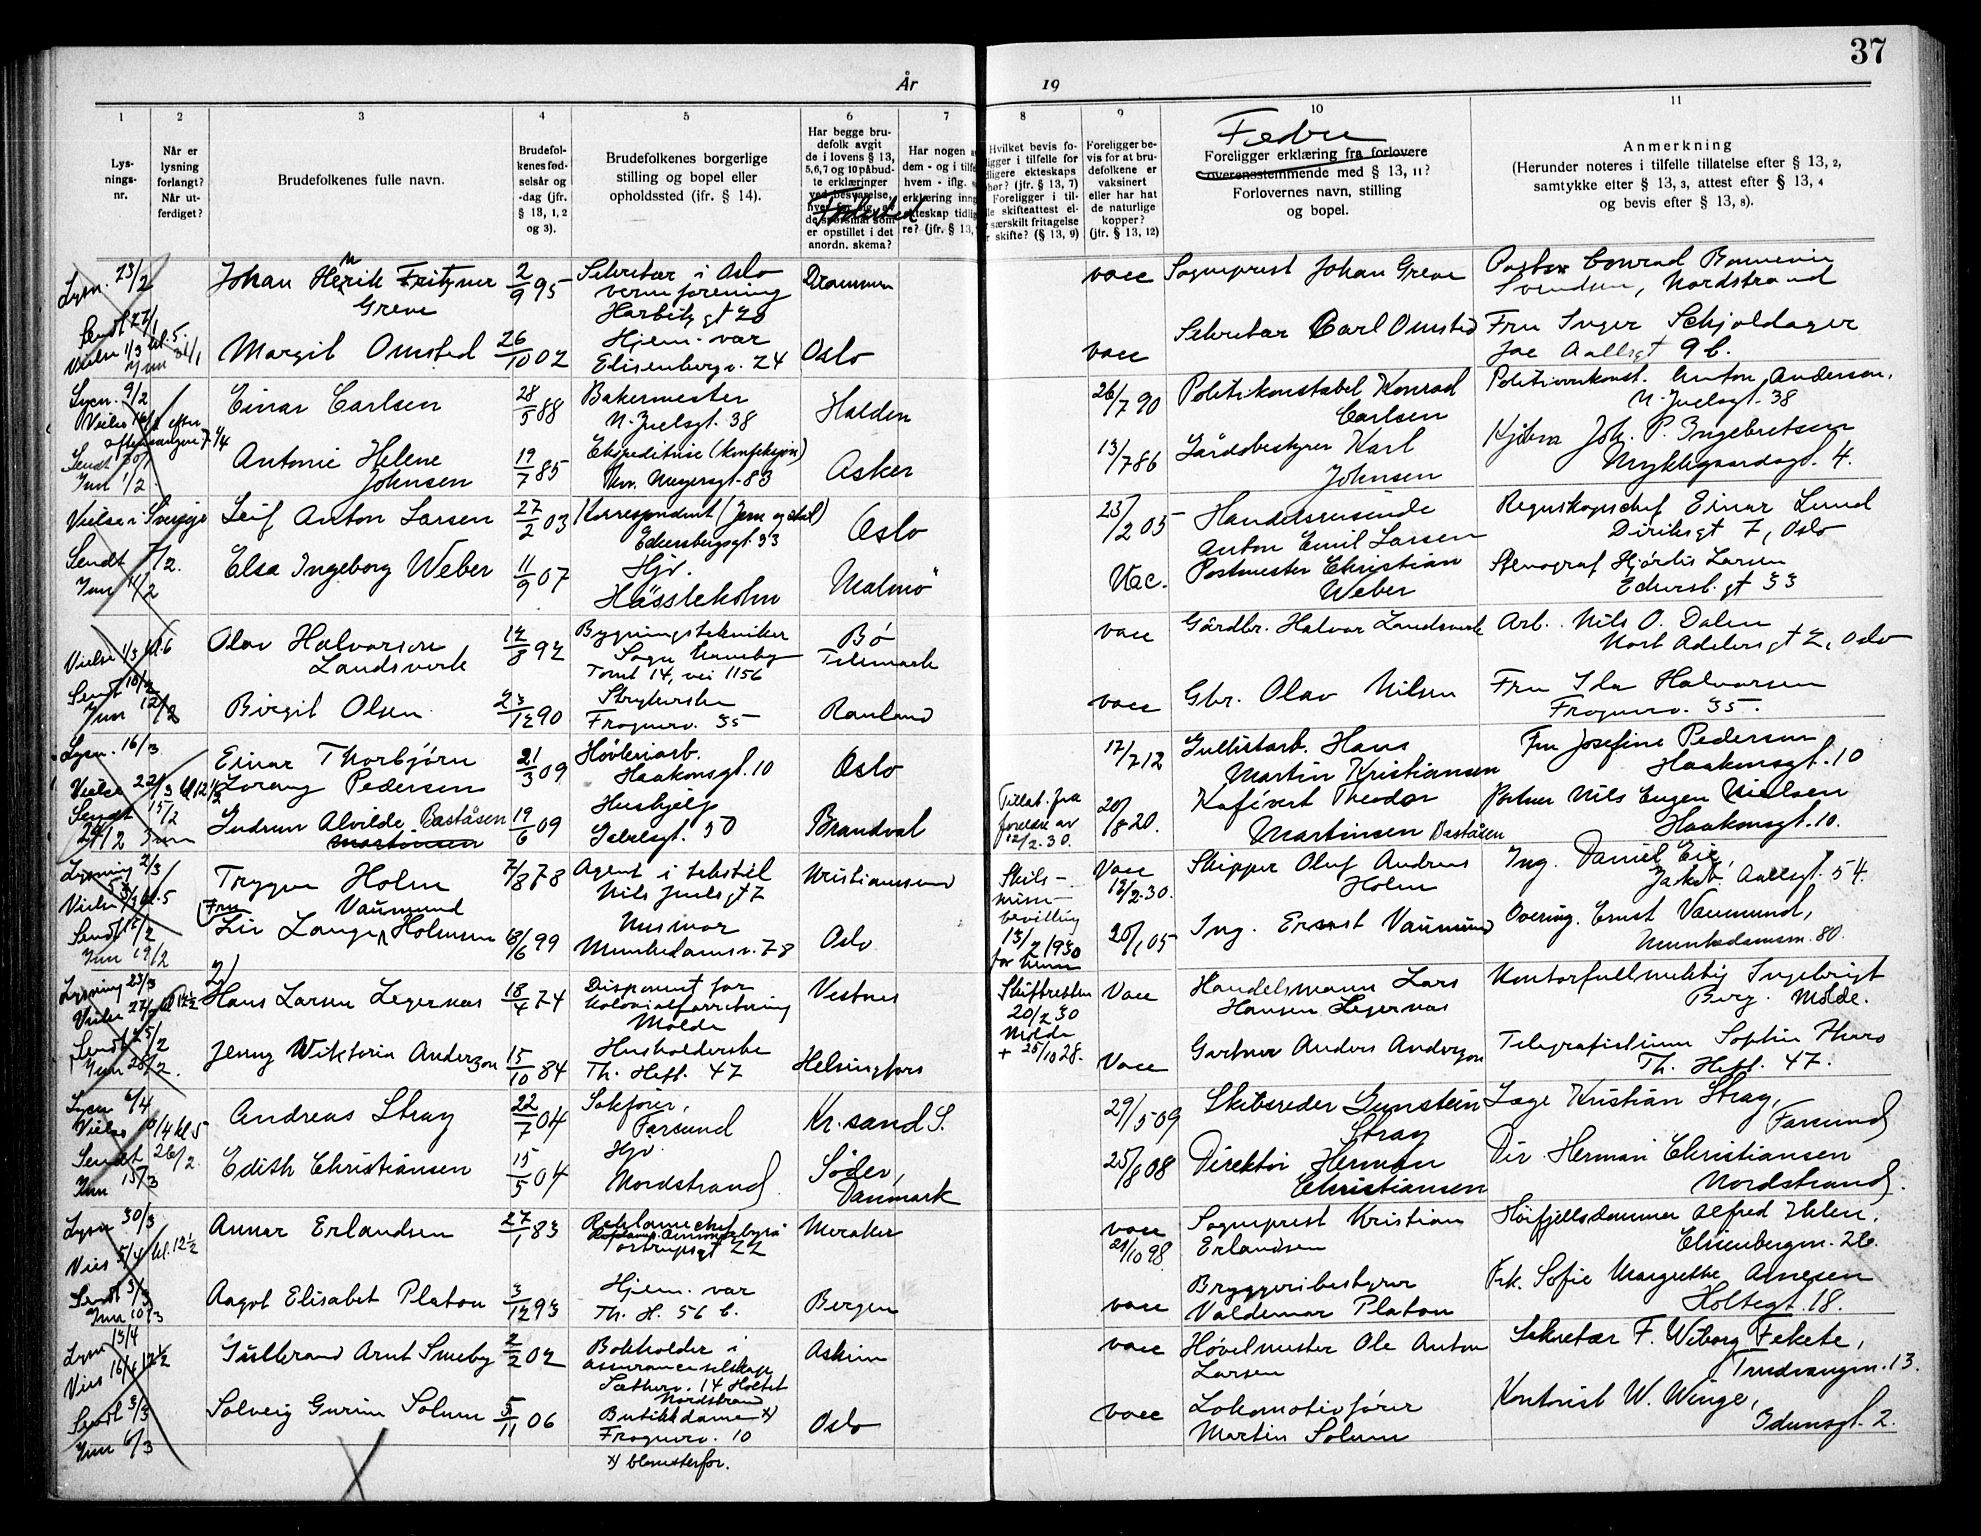 37
År
19
1
2
3
4
5
6
7
8
9
10
11
Lys-
nings-
nr.
Når er
lysning
forlangt?
Når ut-
ferdiget?
Brudefolkenes fulle navn.
Brudefol-
kenes fød-
selsår og
-dag (jfr.
§ 13, 1, 2
og 3).
Brudefolkenes borgerlige
stilling og bopel eller
opholdssted (jfr. § 14).
Har begge bru-
defolk avgit
de i lovens § 13,
5,6,7 og 10 påbud-
te erklæringer
er opstillet i det
anordn. skema?
Fødested
Har nogen
dem - og i tilf
hvem - iflg.
erklæring inng
kteskap tidlig
re? (jfr. § 13,
Hvilket bevis fo-
ligger i tilfelle for
dligere ekteskaps
her? (jfr. § 13, 7)
Foreligger i til-
le skifteattest el-
særskilt fritagelse
r skifte? (§ 13, 9)
Foreligger be-
vis for at bru-
defolkene er
vaksinert
eller har hat
de naturlige
kopper?
(jfr. § 13, 12)
Fedre
Foreligger erklæring fra forlovere
overensstemmende med § 13, 11?
Forlovernes navn, stilling
og bopel.
Anmerkning
(Herunder noteres i tilfelle tillatelse efter § 13, 2,
samtykke efter § 13, 3, attest efter § 13, 4
og bevis efter § 13, 8).
Lysn. 23/2
Johan Henrik Fritzner
Greve
2/9 95
Sekretær i Oslo
verneforening
Harbitz gt 20
Drammen
vacc
Sogneprest Johan Greve
Pastor Conrad Bonnevie
Svendsen, Nordstrand
Sendt 27/1
Vielse 1/3 kl. 5.
Inn 31/1
Margit Omsted
26/10 02
Hjem. var
Elisenbergv. 24
Oslo
vacc
Sekretær Carl Omsted
Fru Inger Schjoldager
Jac Aallsgt 9 b.
Lysn. 9/2
Einar Carlsen
28/5 88
Bakermester
N. Juelsgt. 38
Halden
26/7 90
Politikonstabel Konrad
Carlsen
Anton Andersen.
N. Juelsgt. 38
Inn 1/2
Antonie Helene
Johnsen
19/7 85
Ekspeditrise (konfeksjon)
Thv. Meyersgt. 83
Asker
13/7 86
Gårdsbestyrer Karl
Johnsen
Joh. P. Ingebretsen
Nrykkegaardsgt. 4.
Vielse i Sverige
Leif Anton Larsen
27/2 03
Korrespondent (Jern og stål)
Eckersbergsgt. 33
Oslo
23/2 05
Handelsreisende
Anton Emil Larsen
Regnskapschef Einar Lund
Diriksgt 7, Oslo
Sendt 7/2.
Inn 11/2
Elsa Ingeborg Weber
11/9 07
Hjv.
Hässleholm
Malmö
Vac.
Postmester Christian
Weber
Stenograf Hjørdis Larsen
Eckersb. gt 33
Vielse 1/3 kl. 6
Olav Halvorson
Landsverk
14/8 92
Bygningstekniker
Sogn haveby
Tomt 14, vei 1156
Bø
Telemark
vacc
Gårdbr. Halvor Landsverk
Arb. Nils O. Dalen
Kort Adelersgt 2, Oslo
Sendt 10/2
Inn 12/2
Birgit Olsen
23/12 90
Strykerske
Frognerv. 35
Rauland
vacc
Gbr. Olav Nilsen
Fru Ida Halvorsen
Frognerv. 35.
Lysn. 16/3.
Vielse 22/3 kl 12 1/2
Einar Thorbjørn
Lorang Pedersen
21/3 09
Høvleriarb.
Haakonsgt. 10
Oslo
17/7 12
Gullistarb. Hans
Martin Kristiansen
Fru Josefine Pedersen
Haakonsgt. 10
Sendt 15/2
Inn
Gudrun Alvilde Baståsen
Martinsen
19/6 09
Hushjelp
Gabelsgt. 50
Brandval
Tillat. fra
foreldre av
12/2. 30.
20/8 20.
Kafévert Theodor
Martinsen Baståsen
Portner Nils Eugen Nielsen
Haakonsgt. 10.
Lysning 2/3
Trygve Holm
7/8 78
Agent i tekstil
Nils Juels gt 7
Kristiansund
Skils-
misse-
bevilling
13/2 1930
for henne
Vacc
12/2. 30.
Skipper Oluf Andreas
Holm
Ing. Daniel Eie,
Jakob Aallsgt. 54.
Inn 19/2
Fru
Liv Lange Vaumund Holmsen
18/6 99
Husmor
Munkedamsv. 78
Oslo
20/1 05
Ing. Ernst Vaumund
Overing. Ernst Vaumund,
Munkedamsv. 80.
Lysning 23/3
Hans Larsen Legernæs
18/4 74
Disponent for
kolonialforretning
Molde
Vestnes
Skifteretten
20/2 30
Molde
+ 25/10 28.
Vacc
Handelsmann Lars
Hansen Legernæs
Kontorfullmektig Ingebrigt
Berg. Molde.
Sendt 25/2
Inn 28/2.
Jenny Wiktoria Anderzon
15/10 84
Husholderske
Th. Heft. 47
Helsingfors
Vacc
Gartner Anders Anderzon
Telegrafistinne Sophie Tharo
Th. Heft. 47.
Lysn 6/4
Andreas Stray
22/7 04
Sakfører,
Farsund
Kr. sand S.
29/5 09
Skibsreder Gunstein
Stray
Tage Kristian Stray,
Farsund
Sendt 26/2.
Inn 15/3
Edith Christiansen
15/5 04
Hjv.
Nordstrand
Söder,
Danmark
25/8 08
Direktør Herman
Christiansen
Dir Herman Christiansen
Nordstrand.
Lysn 30/3
Vies 5/4 kl. 12 1/2
Annar Erlandsen
27/1 83
Reklamechef
Tostrupsgt 22
Meraker
vacc
21/10 98.
Sogneprest Kristian
Erlandsen
Høifjellsdommer Alfred Ihlen,
Elisenbergvn. 26.
Sendt 3/3
Inn 10/3
Aagot Elisabet Platou
3/12 93
Hjem. var
Th. H. 56 b.
Bergen
vacc
Bryggeribestyrer
Valdemar Platou
Frk. Sofie Margrethe Arnesen
Holtegt. 18.
Lysn 13/4
Vies 16/4 12 1/2
Gulbrand Arnt Smeby
2/2 02
Bokholder i
assuranceselskap
Sætherv. 14 Holtet
Nordstrand
Askim
vacc
Høvelmester Ole Anton
Larsen
Sekretær F. Wiborg Fekete,
Trudvangvn. 13.
Sendt 3/3
Inn 6/3
Solveig Gurine Solum
5/11 06
Butikkdame x)
Frognerv. 10
x) blomsterfor.
Oslo
vacc
Lokomotivfører
Martin Solum
Kontorist W. Winge,
Idunsgt. 2.